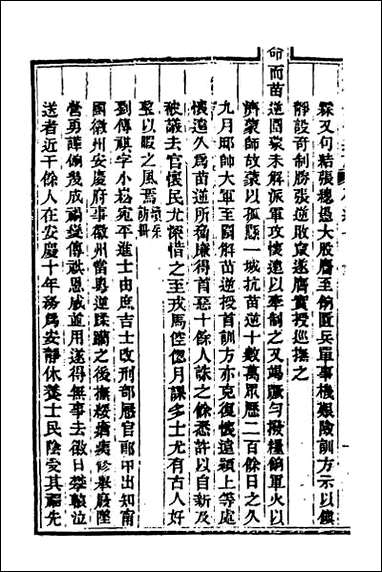 霖又句結張總愚大股麕至餉匱兵單事機艱險訓方示以鎮
靜設奇制勝張逆敗竄遂膺實授巡撫之
命而苗逆圍蒙未解派軍攻懷遠以牽制之又竭蹶勻撥糧餉軍火以
濟蒙師故蒙以孤懸一城抗苗逆十數萬眾歷二百餘日之久
九月邸帥大軍至圍解苗逆授首訓方亦克復懷遠潁上等處
懷遠久為苗逆所踞廉得首惡十餘人誅之餘悉許以自新及
被議去官懷民尤深惜之至戎馬倥傯月課多士尤有古人好
整以暇之風焉
劉傳祺字小崧宛平進士由庶吉士改刑部歷官郎中出知南
國徽州安慶府事徽州當粵逆蹂躪之後撫綏瘡痍修舉廢墜
營勇譁傾幾成禍變傳祺恩威並用遂得無事去徽日攀轅泣
送者近千餘人在安慶十年務為安靜休養士民陰受其福先